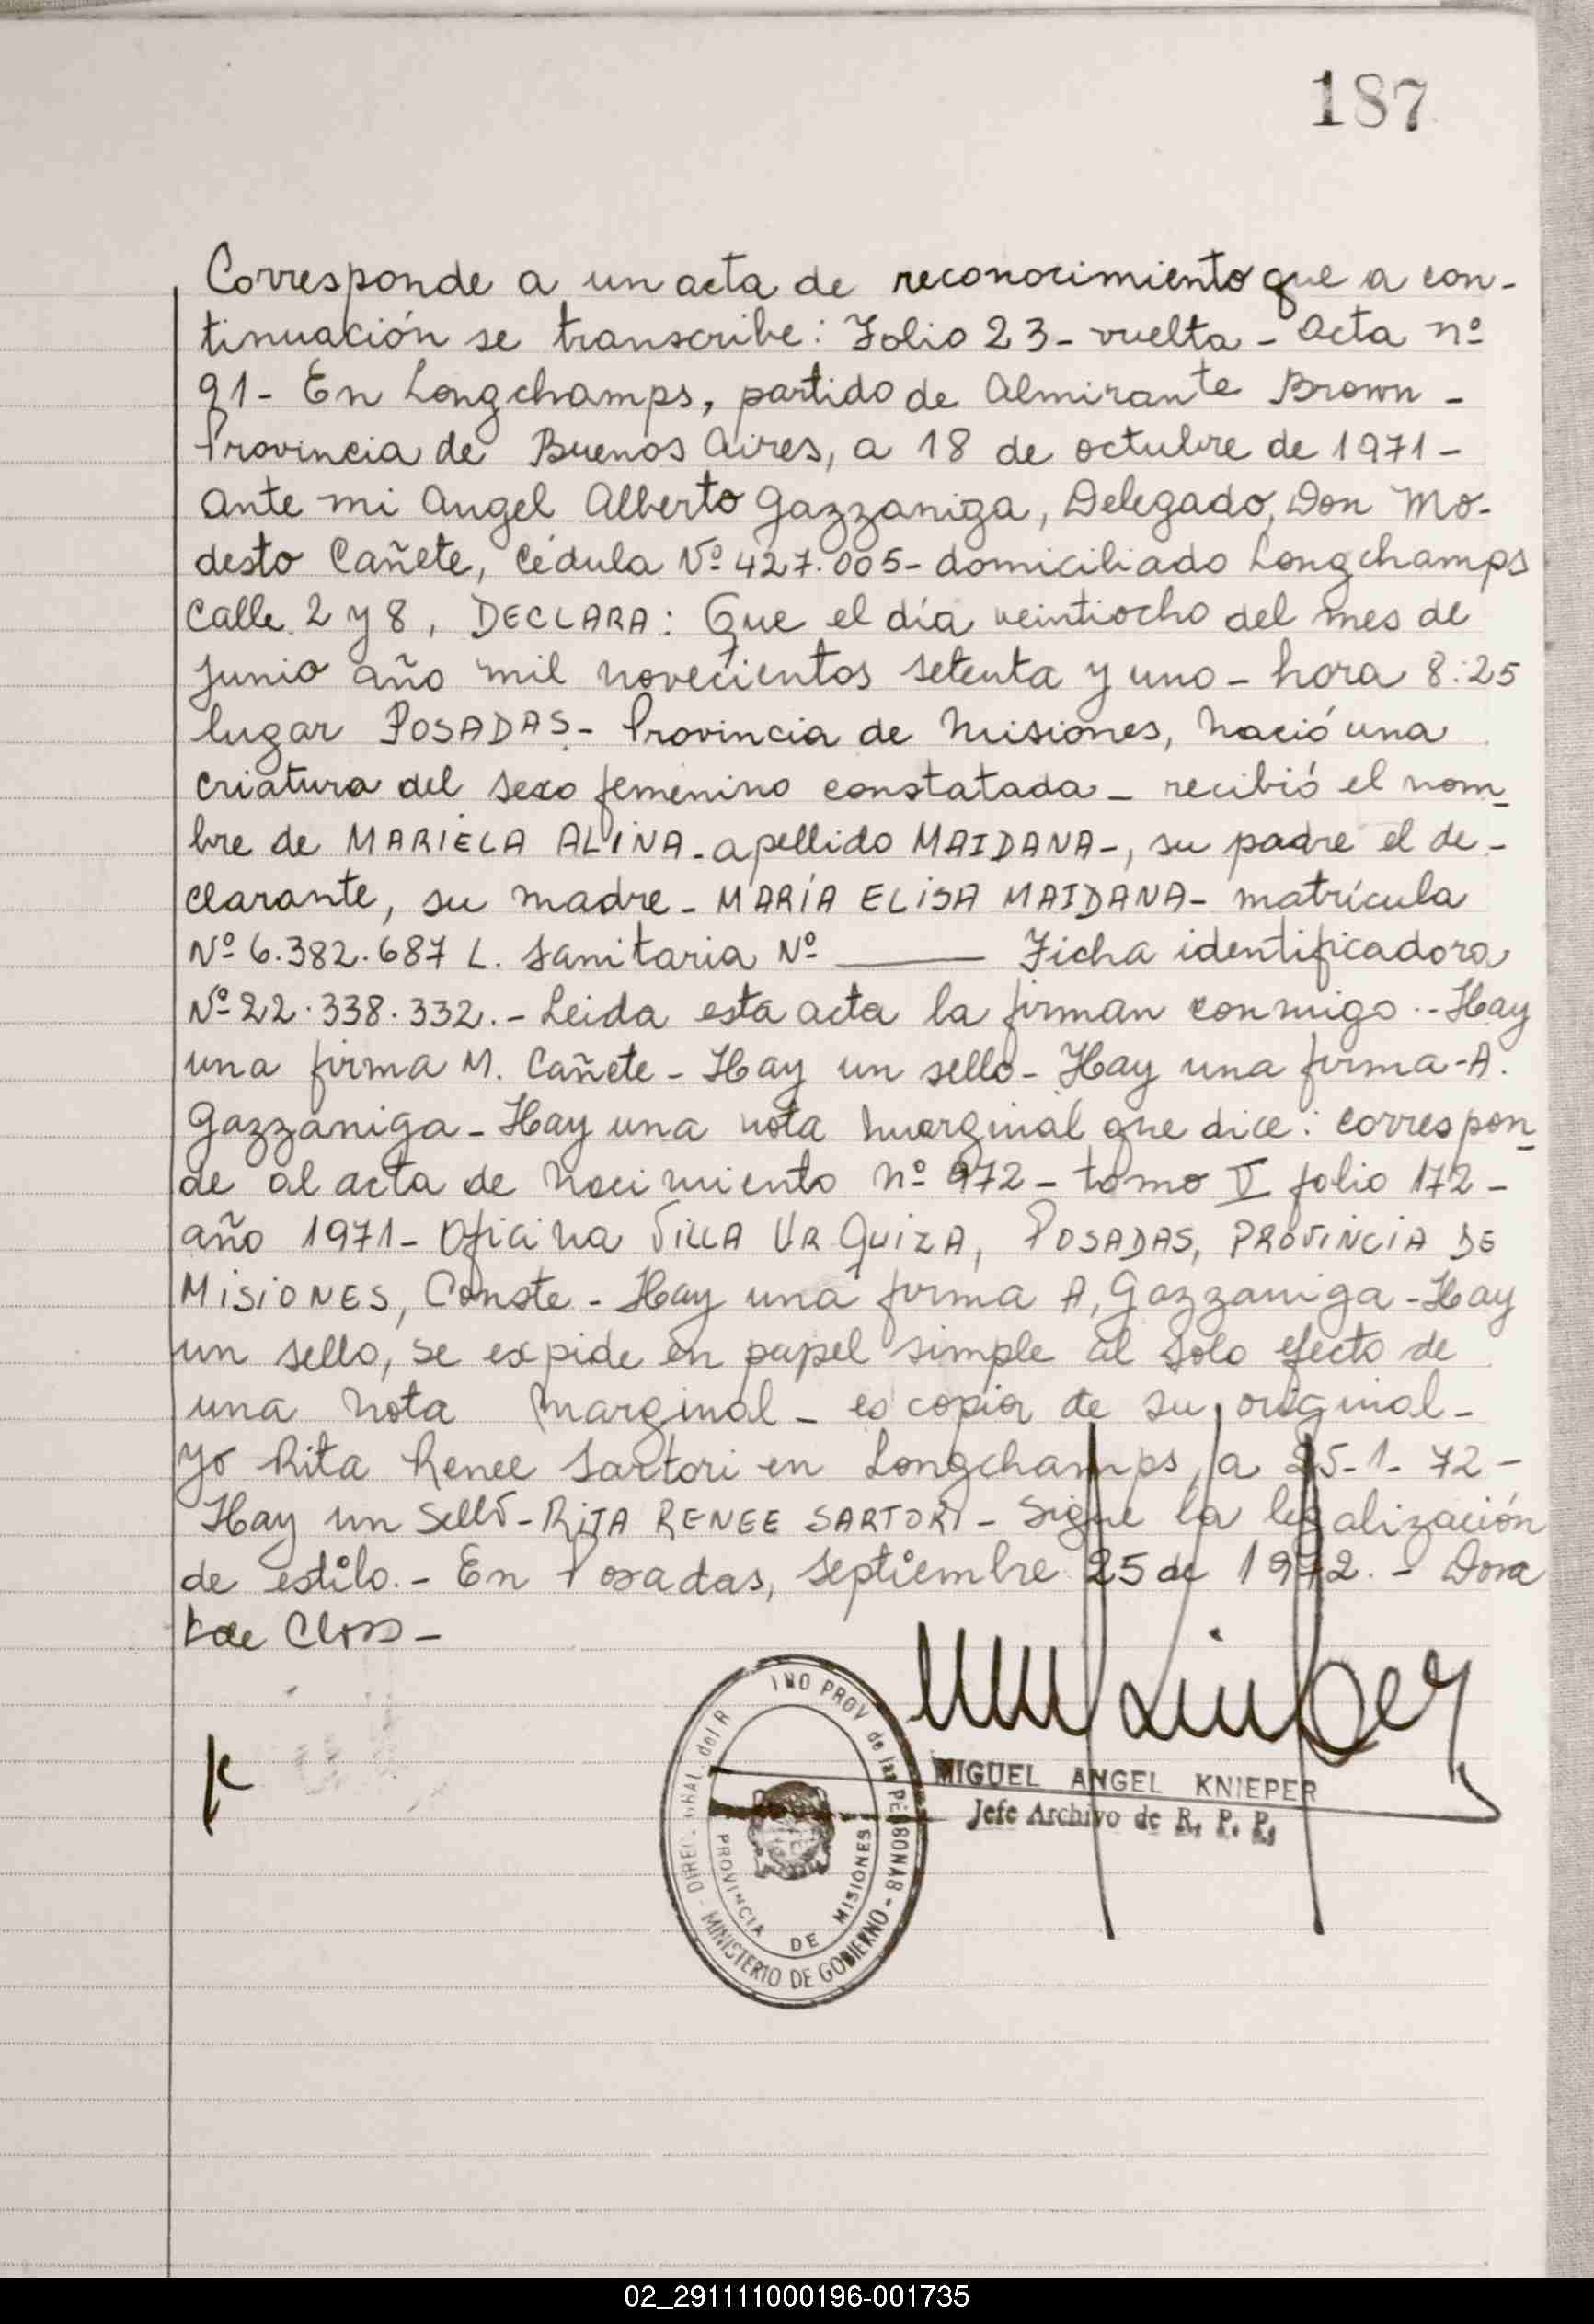 187
Corresponde a un acta de reconocimiento que a con-
tinuación se transcribe: Folio 23- vuelta - Acta nº
91- En Longchamps, partido de Almirante Brown -
Provincia de Buenos Aires, a 18 de octubre de 1971 -
Ante mi Angel Alberto Gazzaniga, Delegado, Don Mo-
desto Cañete, Cédula Nº 427.005- domiciliado Longchamps
Calle 2 y 8, DECLARA: Que el día veintiocho del mes de
Junio año mil novecientos setenta y uno - hora 8:25
lugar POSADAS- Provincia de Misiones, nació una
criatura del sexo femenino constatada - recibió el nom-
bre de MARIELA ALINA - apellido MAIDANA-, su padre el de-
clarante, su madre - MARÍA ELISA MAIDANA- matrícula
Nº 6.382.687 L. Sanitaria Nº ——— Ficha identificadora
Nº 22.338.332.- Leida esta acta la firman conmigo.- Hay
una firma M. Cañete - Hay un sello - Hay una firma - A.
Gazzaniga - Hay una nota marginal que dice: correspon-
de al acta de nacimiento nº 972 - tomo V folio 172 -
año 1971 - Oficina VILLA URQUIZA, POSADAS, PROVINCIA DE
MISIONES, Conste - Hay una firma A, Gazzaniga - Hay
un sello, se expide en papel simple al solo efecto de
una nota marginal - es copia de su original -
Yo Rita Renee Sartori en Longchamps, a 25-1-72 -
Hay un sello - RITA RENEE SARTORI - Sigue la legalización
de estilo. - En Posadas, Septiembre 25 de 1972. - Dora
de Closs -
MIGUEL ANGEL KNIEPER
Jefe Archivo de R. P. P.
DIREC. GRAL. del R PROV de las PERSONAS - MINISTERIO DE GOBIERNO -
PROVINCIA DE MISIONES
02_291111000196-001735